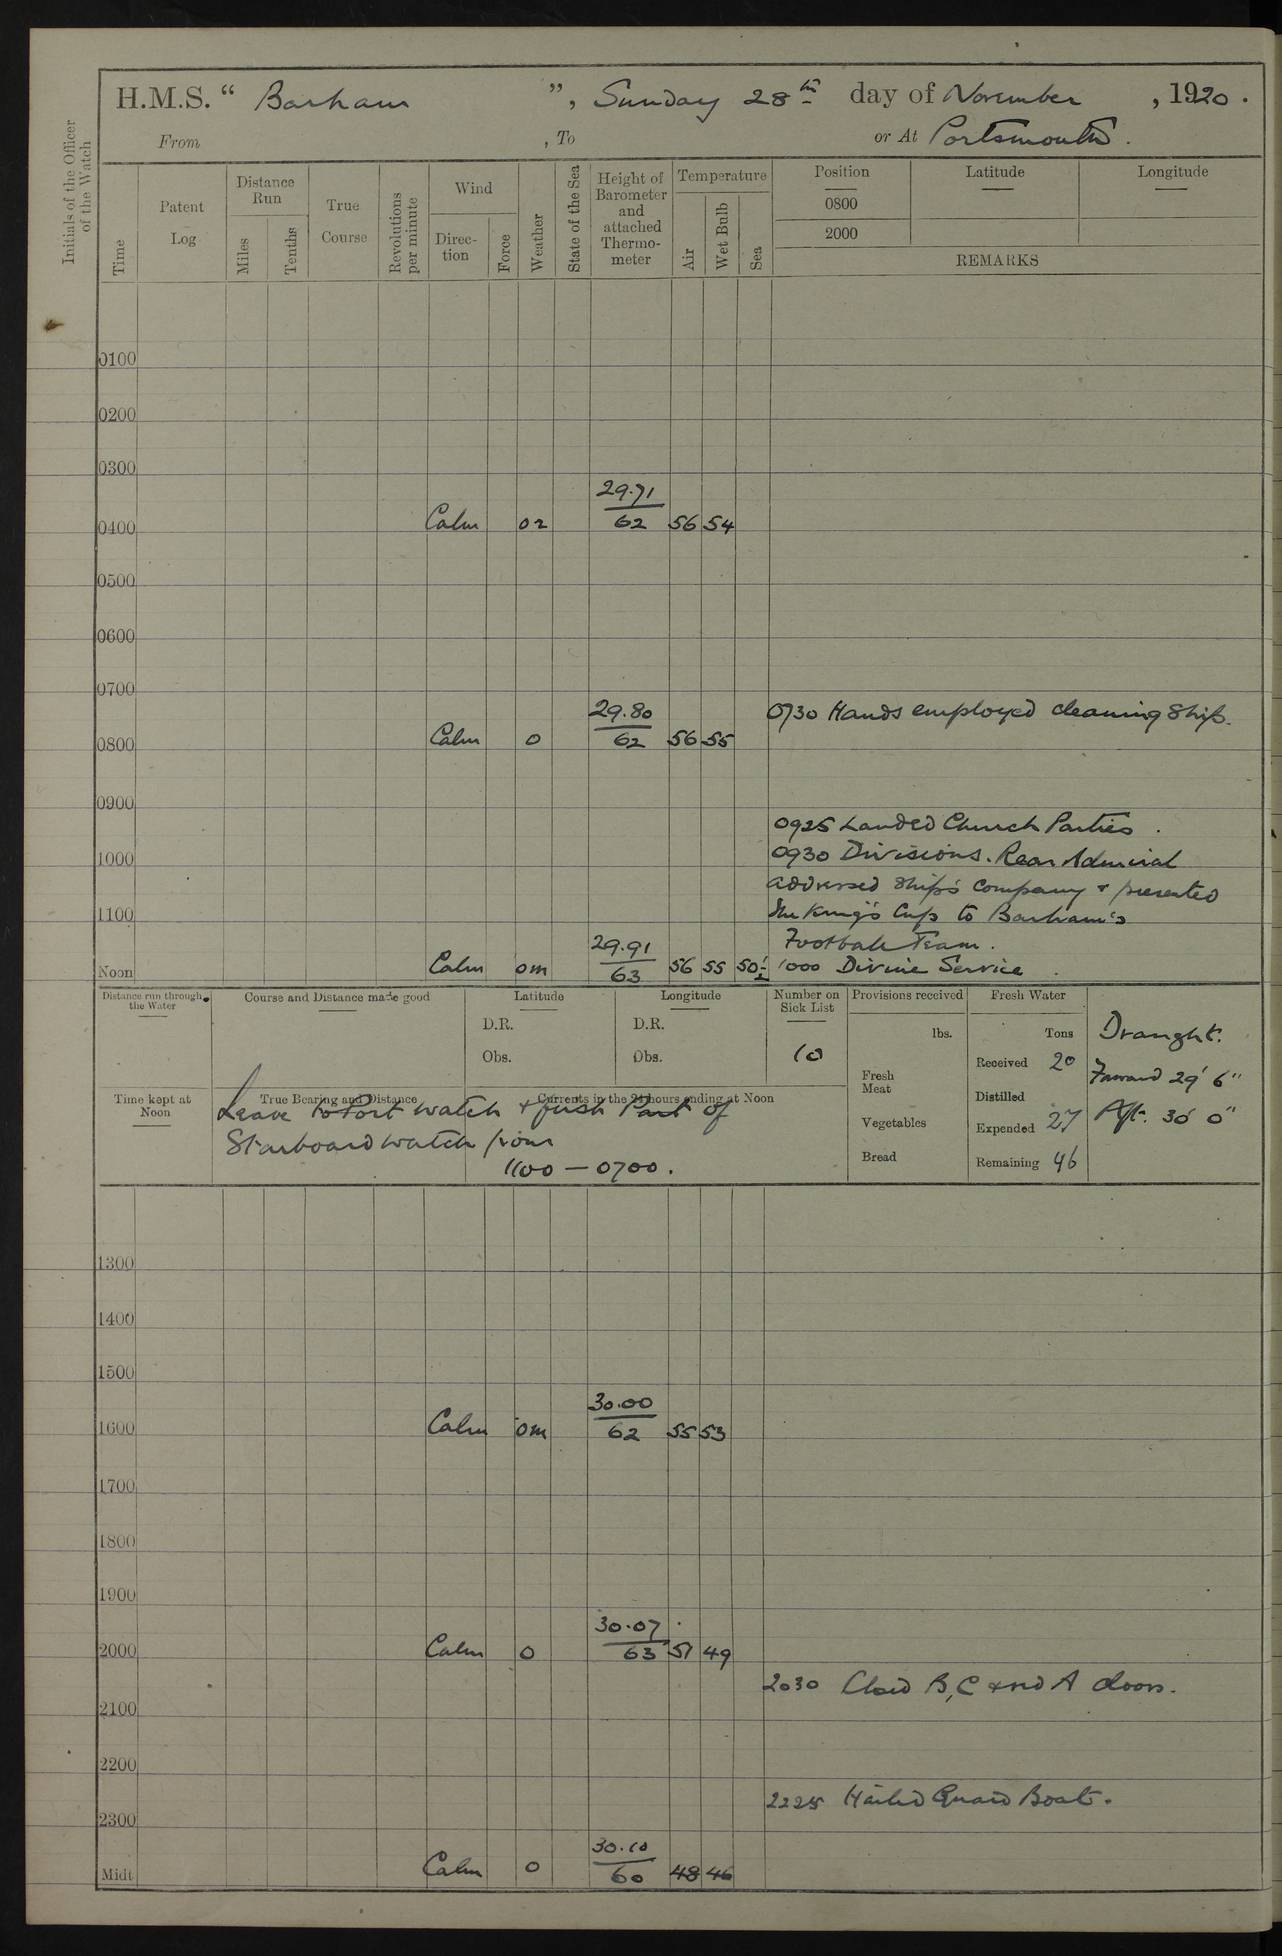 H.M.S. “ Barham ”, Sunday 28th day of November , 1920 .
From , To or At Portsmouth .
Initials of the Officer of the Watch
Time
Patent Log
Distance Run
Miles
Tenths
True Course
Revolutions per minute
Wind
Direc-tion
Force
Weather
State of the Sea
Height of Barometer and attached Thermo-meter
Temperature
Air
Wet Bulb
Sea
Position Latitude Longitude
0800
2000
REMARKS
0100
0200
0300
29.71
0400 Calm or 62 56 54
0500
0600
0700
29.80 0730 Hands employed cleaning Ship.
0800 Calm o 62 56 55
0900
0925 Landed Church Parties .
0930 Divisions. Rear Admiral
1000
addressed Ship's Company & presented
1100 the King's Cup to Barham's
29.91 Football Team .
Noon Calm om 63 56 55 50½ 1000 Divine Service
Distance run through the Water
Course and Distance made good
Latitude
D.R.
Obs.
Longitude
D.R.
Obs.
Number on Sick List
10
Provisions received
lbs.
Fresh Meat
Vegetables
Bread
Fresh Water
Tons
Received 20
Distilled
Expended 27
Remaining 46
Draught.
Forward 29' 6"
Aft. 30' 0"
Time kept at Noon
True Bearing and Distance
Currents in the 24 hours ending at Noon
Leave to Port watch & first Part of
Starboard watch from
1100 — 0700 .
1300
1400
1500
30.00
1600 Calm om 62 55 53
1700
1800
1900
30.07
2000 Calm o 63 51 49
2030 Closed B, C and A doors.
2100
2200
2225 Hailed Guard Boat.
2300
30.10
Midt Calm o 60 48 46